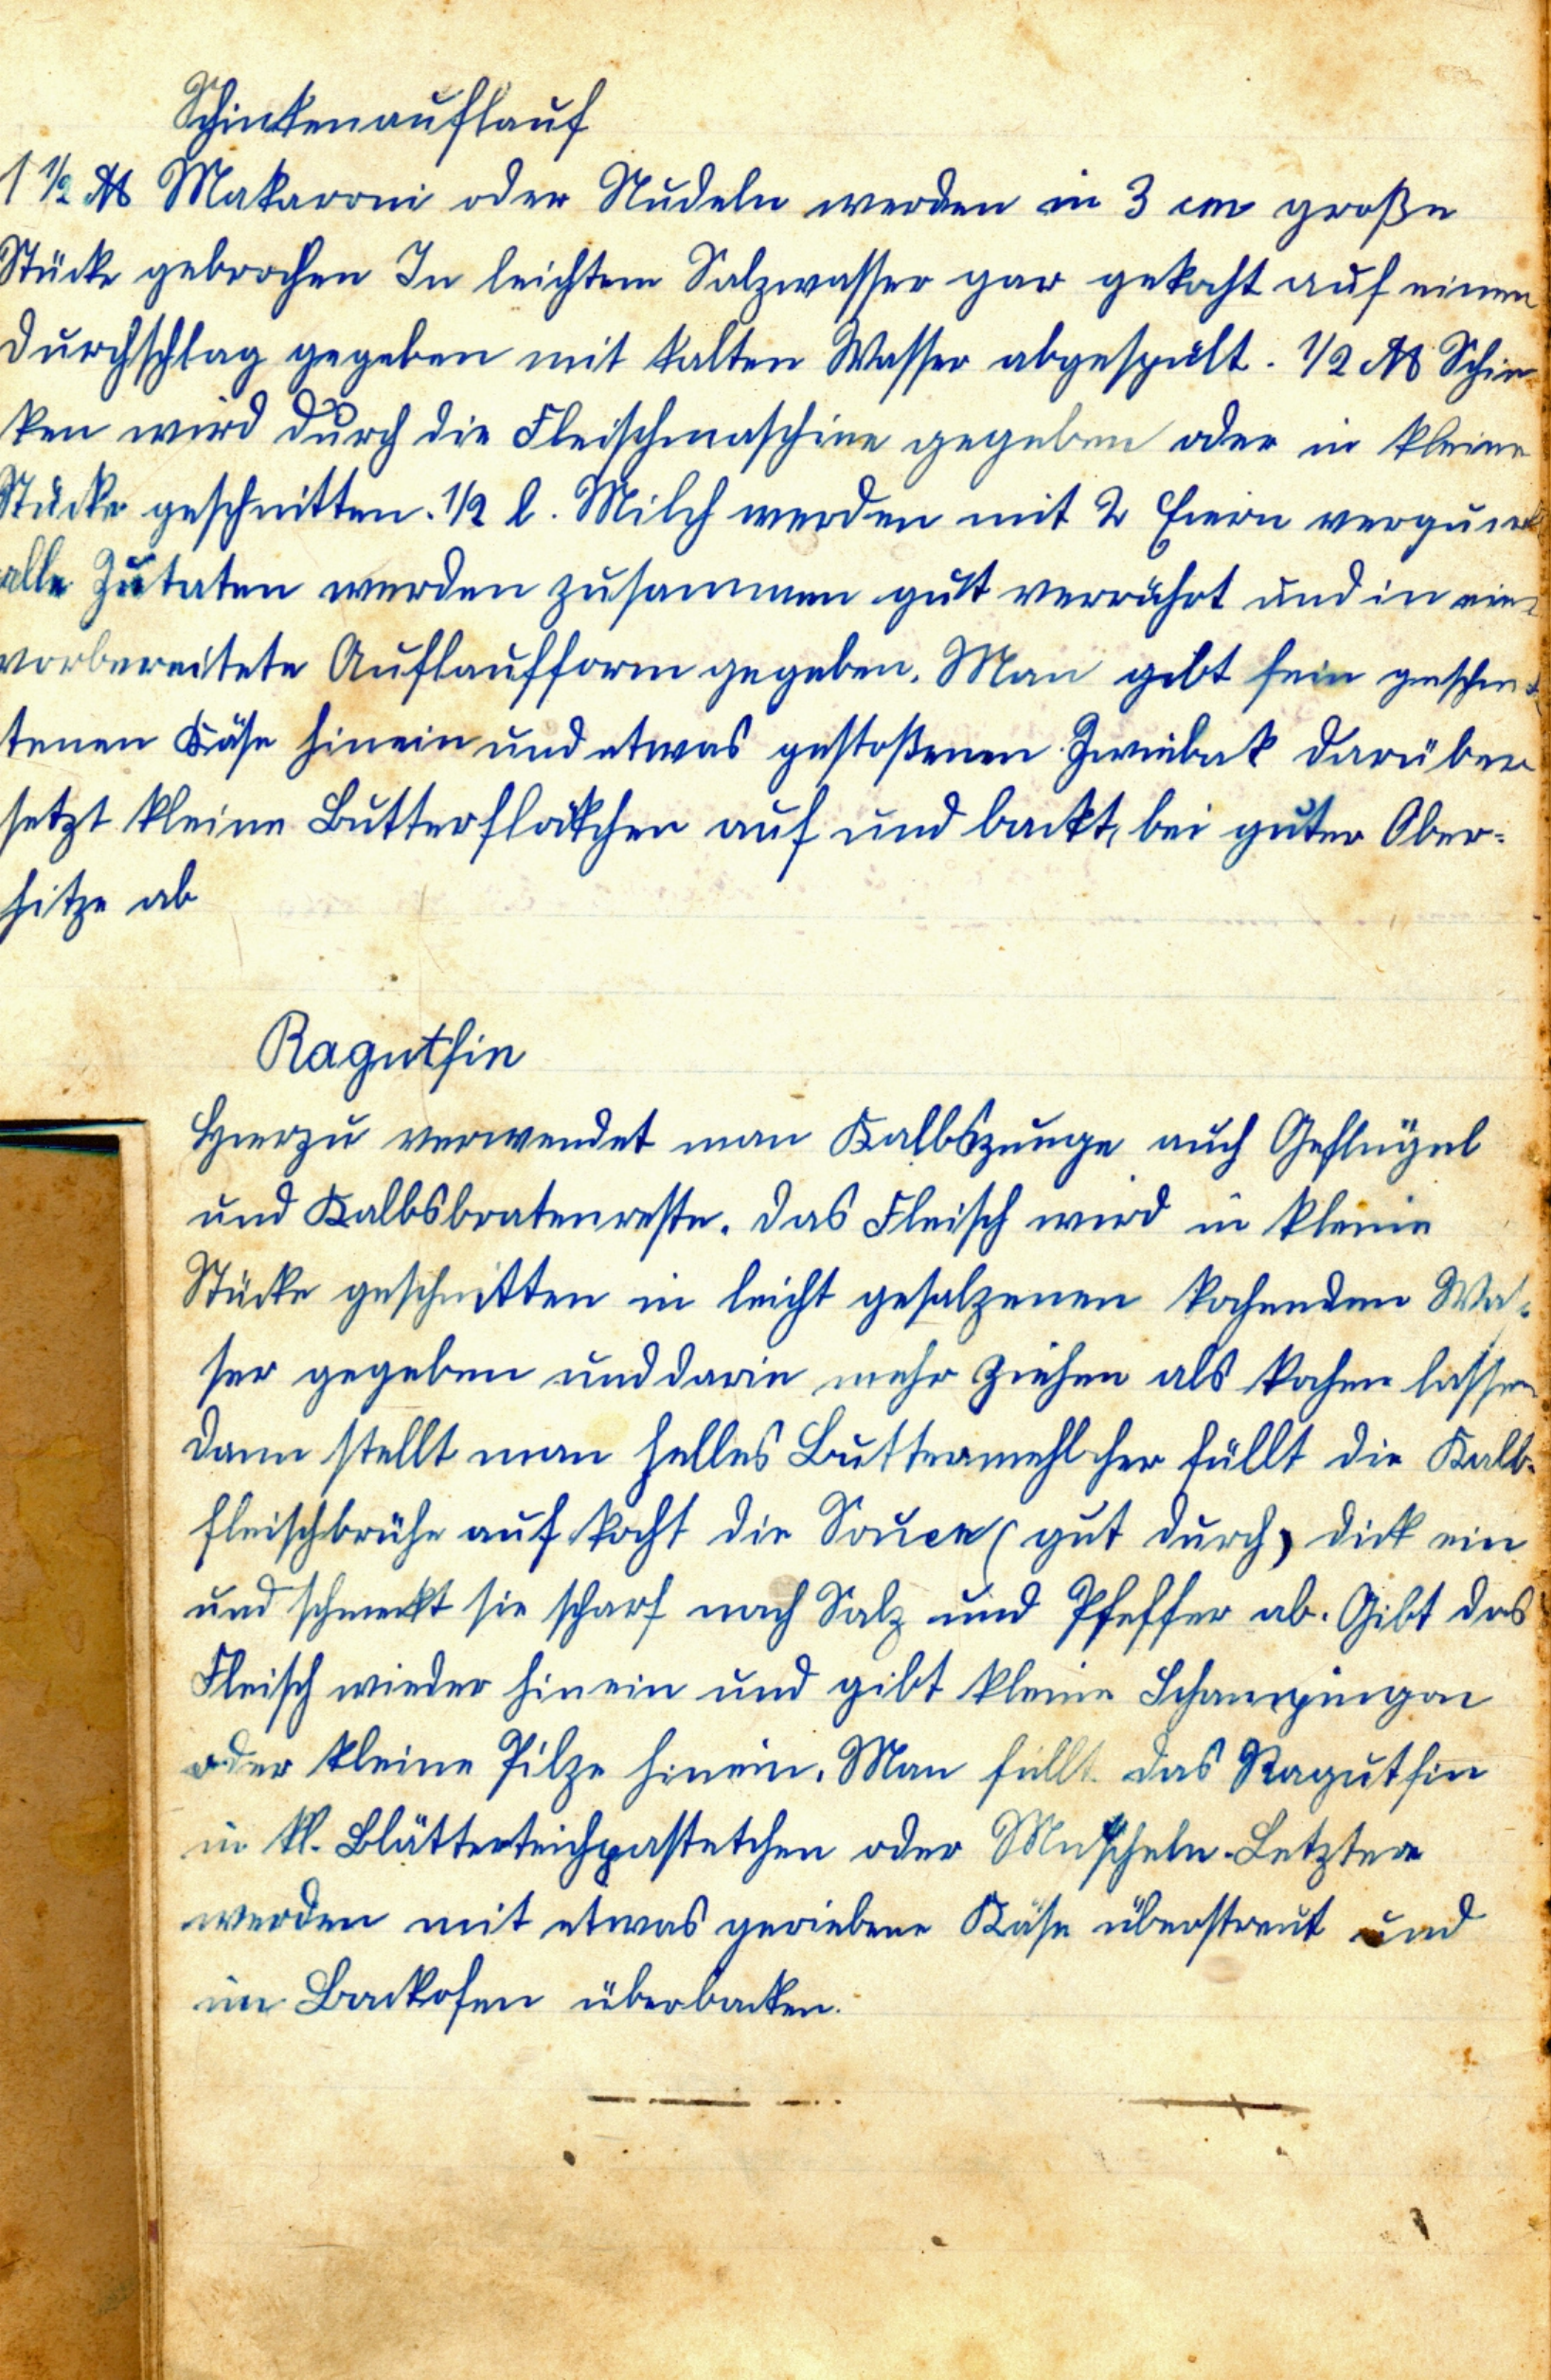 Schinkenauflauf
1 1/2 ℔ Makaroni oder Nudeln werden in 3 cm große
Stücke gebrochen In leichtem Salzwasser gar gekocht auf einen
Durchschlag gegeben mit kalten Wasser abgespült. 1/2 ℔ Schin-
ken wird durch die Fleischmaschine gegeben oder in kleine
Stücke geschnitten. 1/2 l. Milch werden mit 2 Eiern verquirlt
alle Zutaten werden zusammen gut verrührt und in eine
vorbereitete Auflaufform gegeben. Man gibt fein geschnit
tenen Käse hinein und etwas gestoßenen Zwiebak darüber
setzt kleine Butterflökchen auf und backt, bei guter Ober-
hitze ab
Ragutfin
Hierzu verwendet man Kalbszunge auch Geflügel
und Kalbsbratenreste. Das Fleisch wird in kleine
Stücke geschnitten in leicht gesalzenen kochendem Was-
ser gegeben und darin mehr ziehen als kochen lassen
dann stellt man helles Buttermehl her füllt die Kalb-
fleischbrühe auf kocht die Souce (gut durch) dick ein
und schmeckt sie scharf nach Salz und Pfeffer ab. Gibt das
Fleisch wieder hinein und gibt kleine Schampingon
oder kleine Pilze hinein. Man füllt das Ragutfin
in kl. Blätterteichpastetchen oder Muscheln. Letztere
werden mit etwas geriebene Käse überstreut und
im Backofen überbacken.